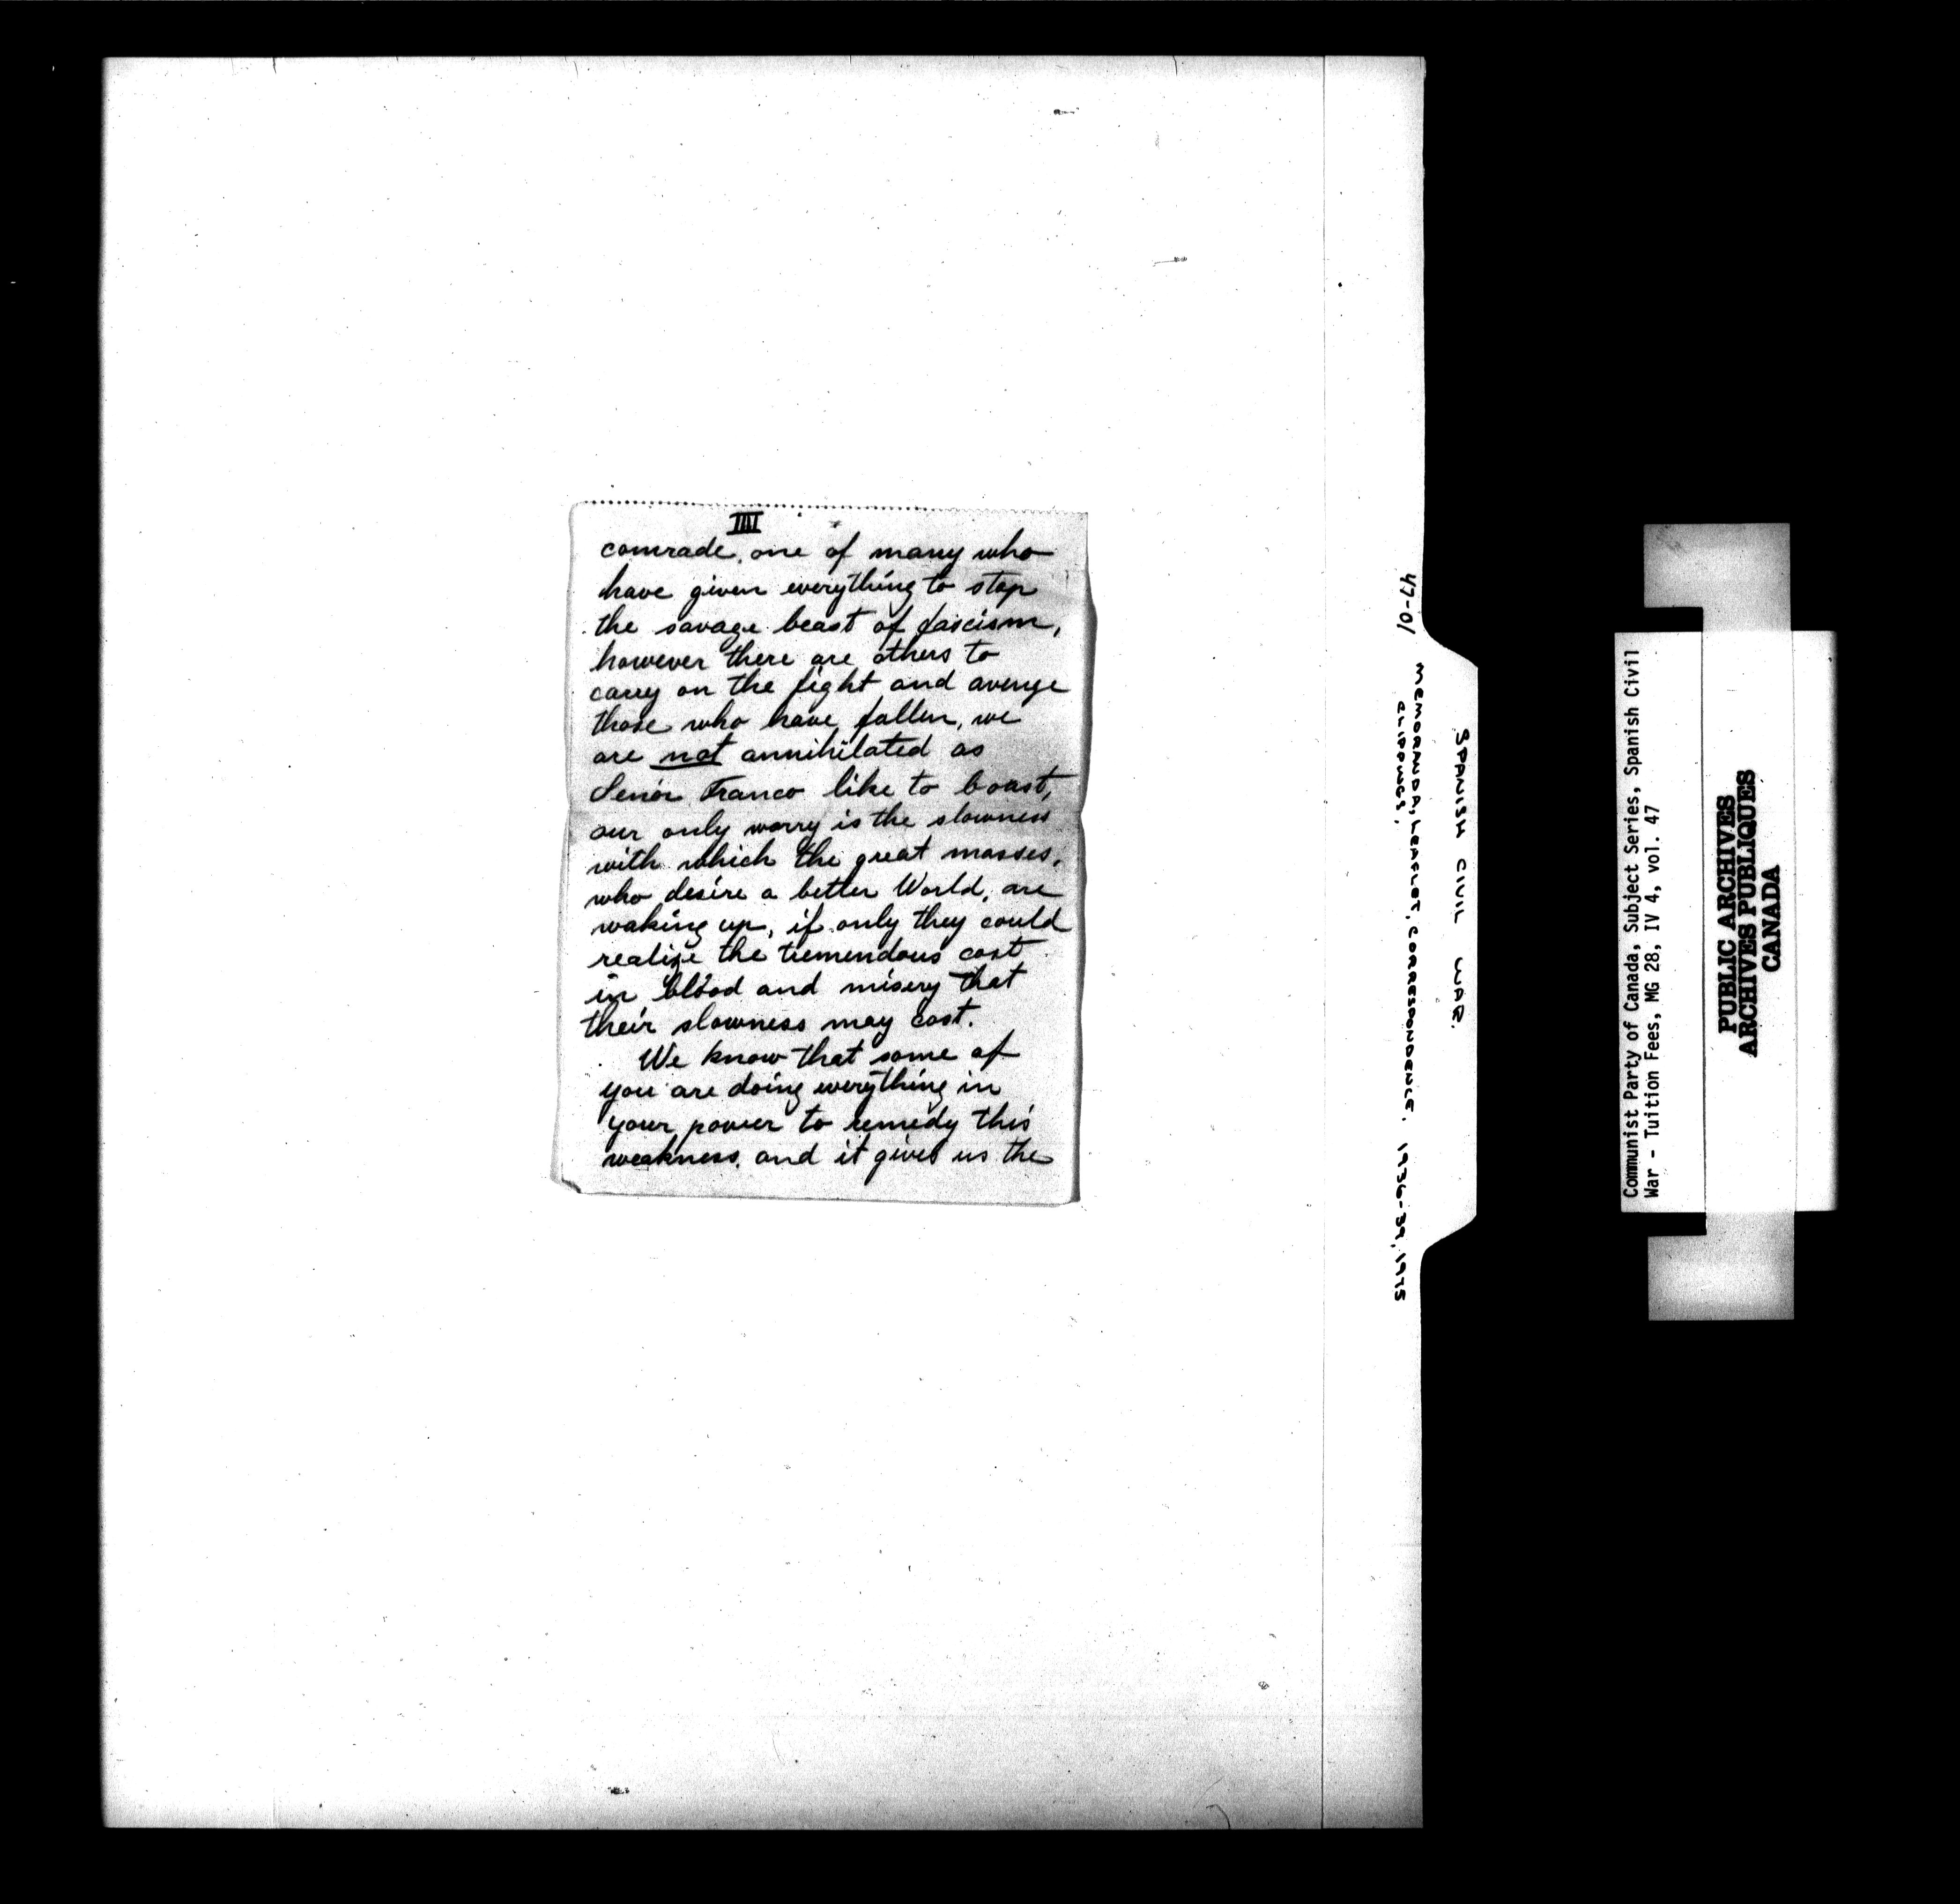 III
comrade, one of many who
have given everything to stop
the savage beast of fascism,
however there are others to
carry on the fight and avenge
those who have fallen, we
are not annihilated as
Senor Franco like to boast,
our only worry is the slowness
with which the great masses,
who desire a better World, are
waking up, if only they could
realize the tremendous cost
in blood and misery that
their slowness may cost.
We know that some of
you are doing everything in
your power to remedy this
weakness, and it gives us the
SPANISH CIVIL WAR.
47-01 MEMORANDA, LEAFLET, CORRESPONDENCE, 1936-39, 1975
CLIPPINGS,
Communist Party of Canada, Subject Series, Spanish Civil
War - Tuition Fees, MG 28, IV 4, vol. 47
PUBLIC ARCHIVES
ARCHIVES PUBLIQUES
CANADA